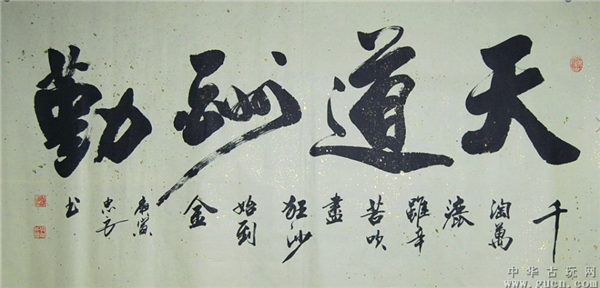 天道酬勤
千
淘萬
漉
雖辛
苦吹
盡
狂沙
始到
金
庚寅
忠
书
中华古玩网
www.gucn.com